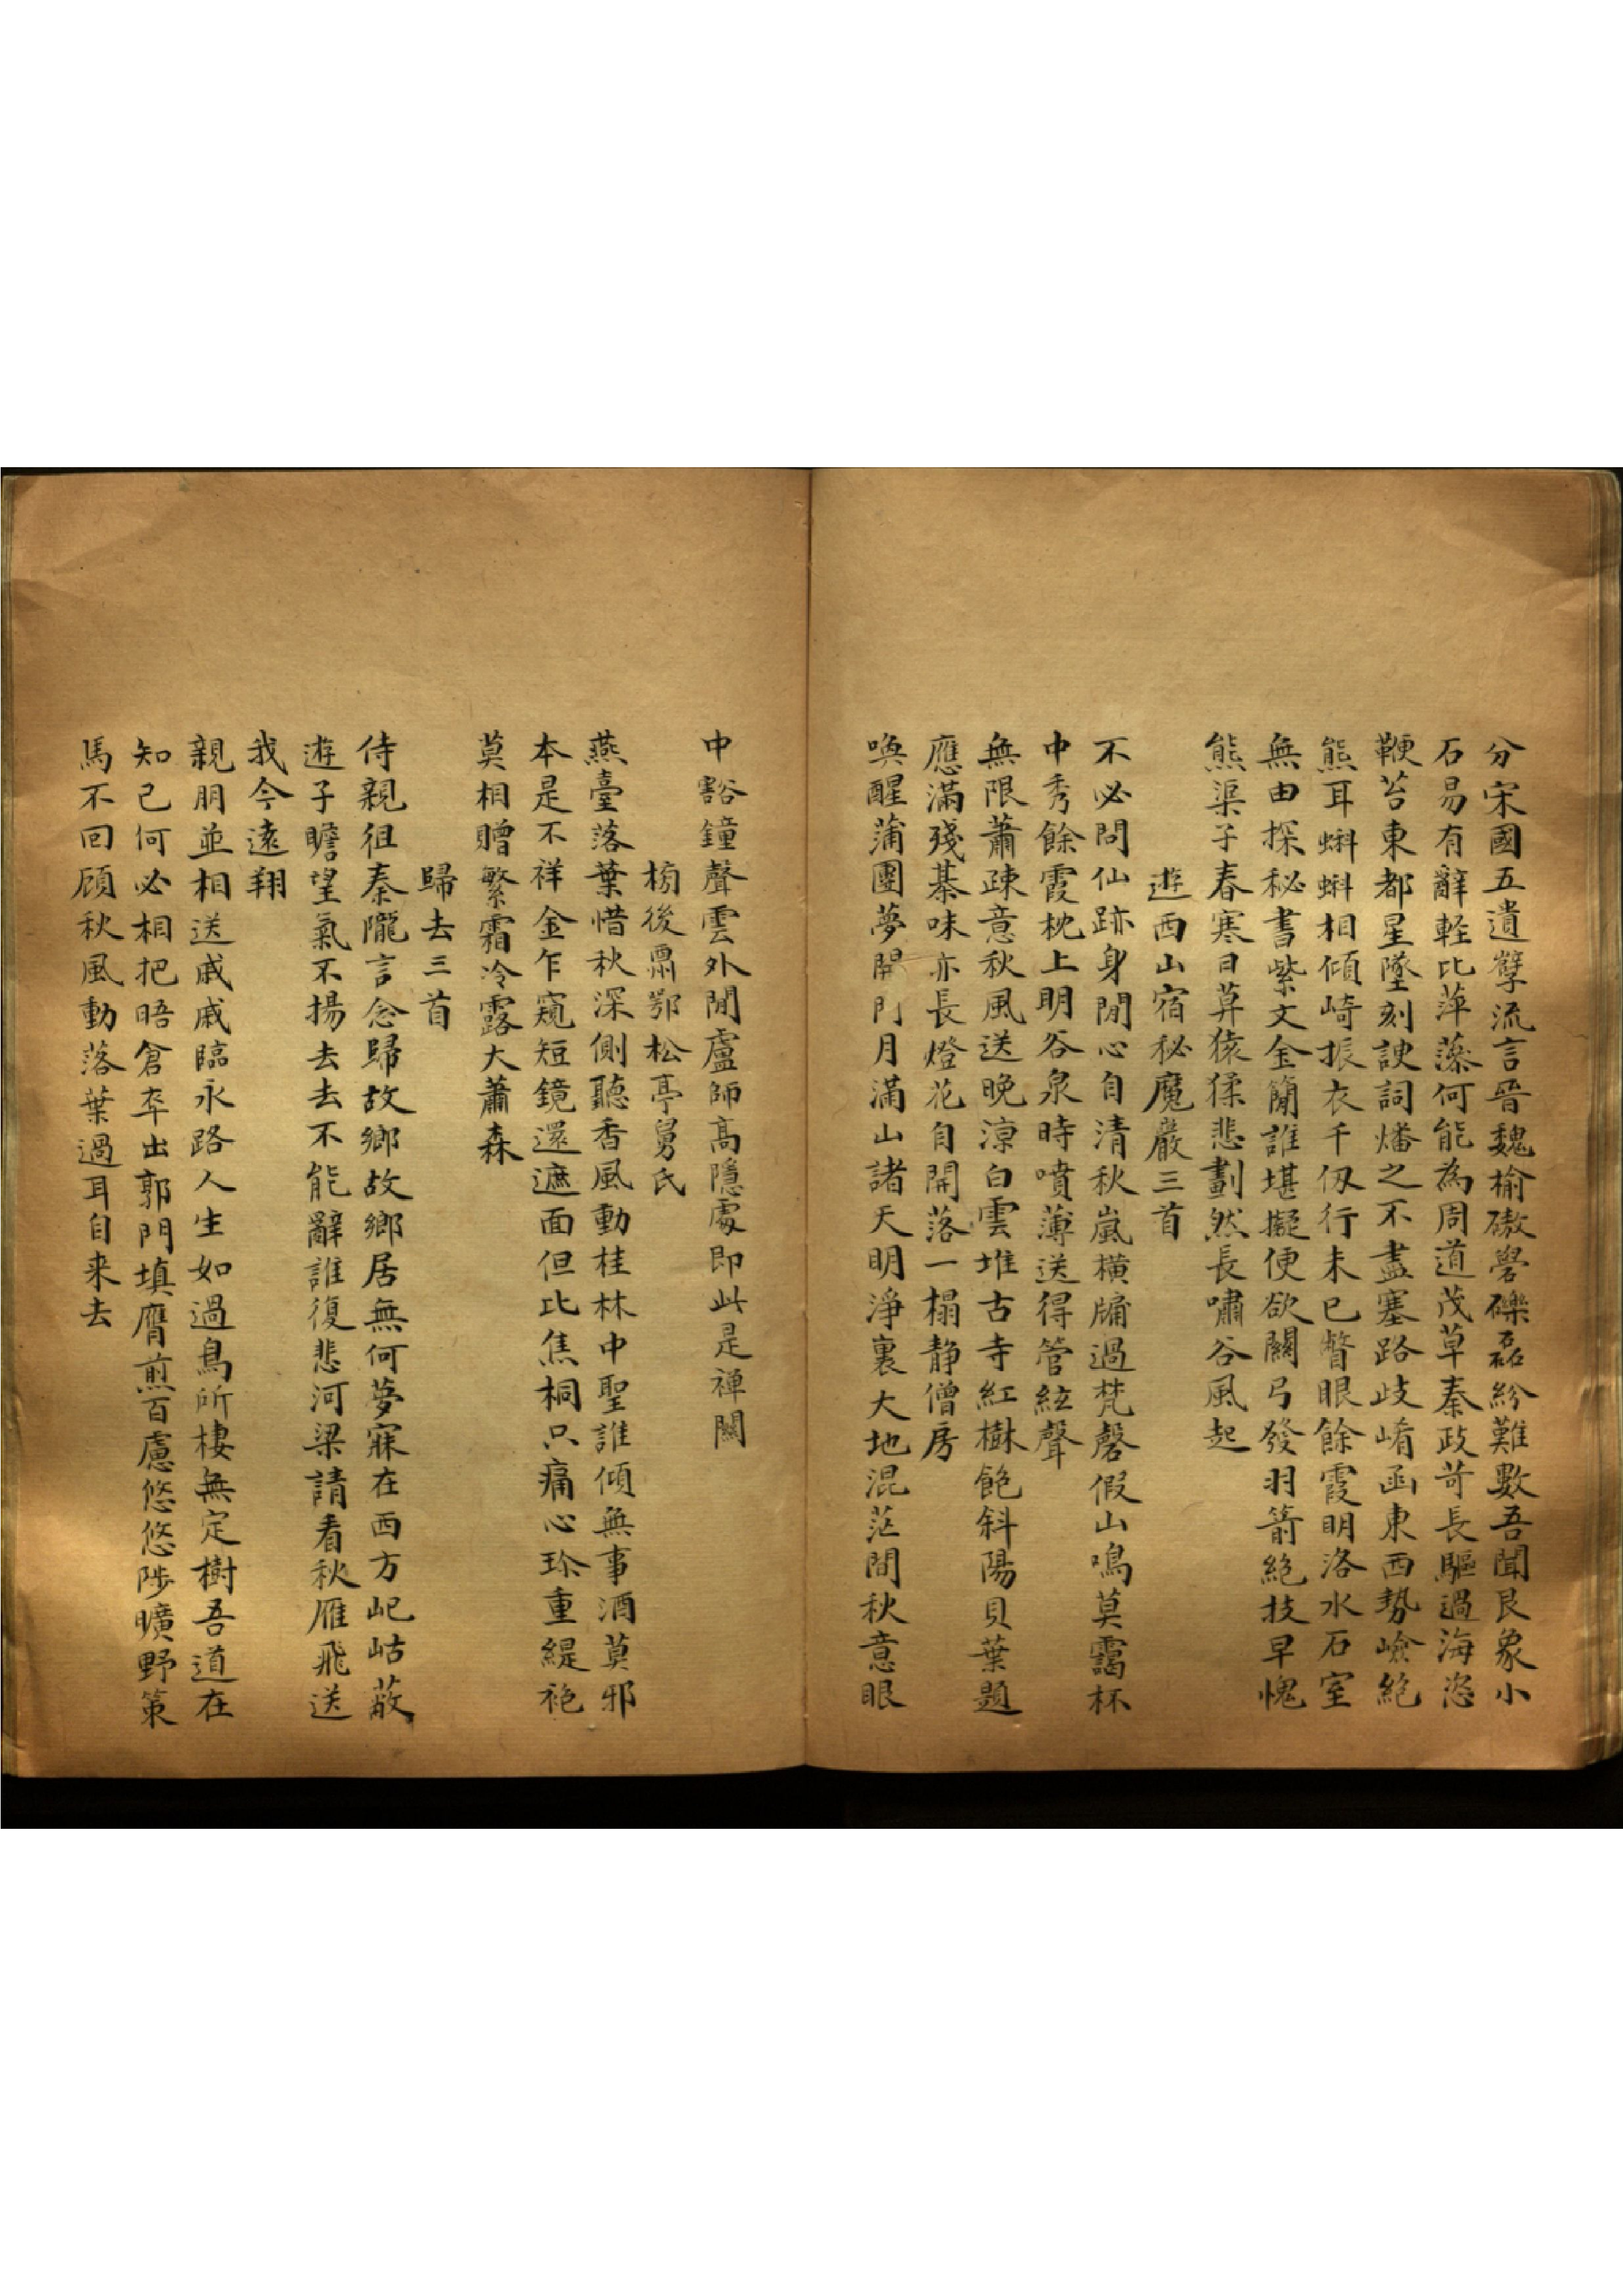 分宋國五遺孽流言晉魏榆磝礐礫磊紛難數吾聞艮象小
石易有辭輕比萍藻何能為周道茂草秦政苛長驅過海恣
鞭笞東都星墜刻諛詞燔之不盡塞路歧崤函東西勢嶮絕
熊耳蝌蝌相傾崎振衣千仭行未已瞥眼餘霞明洛水石室
無由探秘書紫文金簡誰堪擬便欲關弓發羽箭絕技早愧
熊渠子春寒日算猿猱悲劃然長嘯谷風起
遊西山宿秘魔巖三首
不必問仙跡身閒心自清秋嵐橫牖過梵磬假山鳴莫靄杯
中秀餘霞枕上明谷泉時噴薄送得管絃聲
無限蕭疎意秋風送晚涼白雲堆古寺紅樹飽斜陽貝葉題
應滿殘棊味亦長燈花自開落一榻静僧房
喚醒蒲團夢開門月滿山諸天明淨裏大地混茫間秋意眼
中豁鐘聲雲外閒盧師高隱處即此是禪關
榜後鼏鄂松亭舅氏
燕臺落葉惜秋深側聽香風動桂林中聖誰傾無事酒莫邪
本是不祥金乍窺短鏡還遮面但比焦桐只痛心珍重緹袍
莫相贈繁霜冷露大蕭森
歸去三首
侍親徂秦隴言念歸故鄉故鄉居無何夢寐在西方屺岵蔽
遊子瞻望氣不揚去去不能辭誰復悲河梁請看秋雁飛送
我今遠翔
親朋並相送戚戚臨永路人生如過鳥所棲無定樹吾道在
知己何必相把晤倉卒出郭門填膺煎百慮悠悠陟曠野策
馬不回顧秋風動落葉過耳自来去